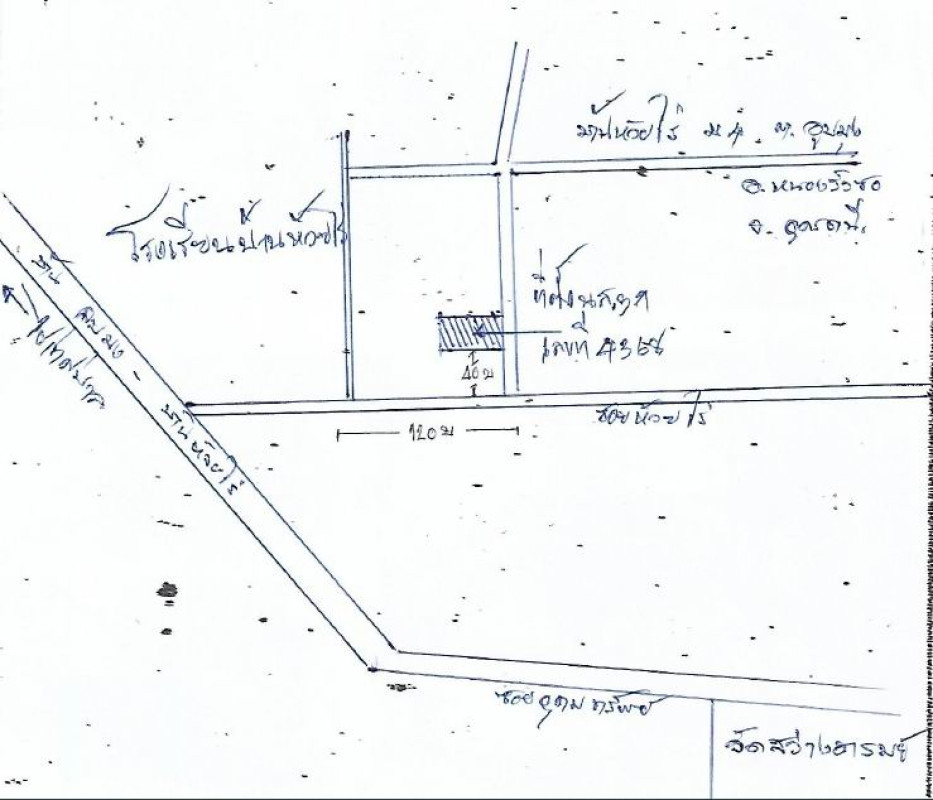 บ้านห้วยไร่ ม 4 ต. อูบมุง
อ. หนองวัวซอ
จ. อุดรธานี
โรงเรียนบ้านห้วยไร่
ที่ตั้ง น.ส.3 ก
เลขที่ 4368
40 ม
120 ม
ซอยห้วยไร่
บ้าน อูบมุง - บ้านห้วยไร่
ซอยอุดมทรัพย์
วัดสว่างอารมย์